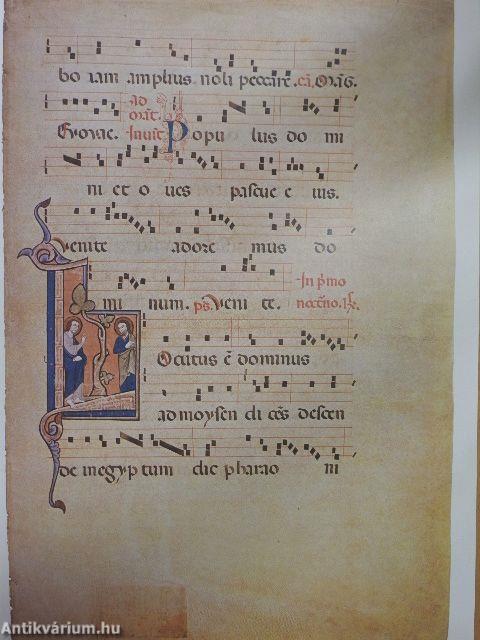 bo iam amplius noli peccare. cā, Orāō.
ad
orāt.
Evovae. Invit Popu lus do mi
ni et o ves pascue e ius.
Venite adore mus do
mi num. ps. Veni te. In pmo
nocēno. ℟.
Locutus ē dominus
ad moysen di cēs descen
de in egyptum dic pharao ni
Antikvárium.hu